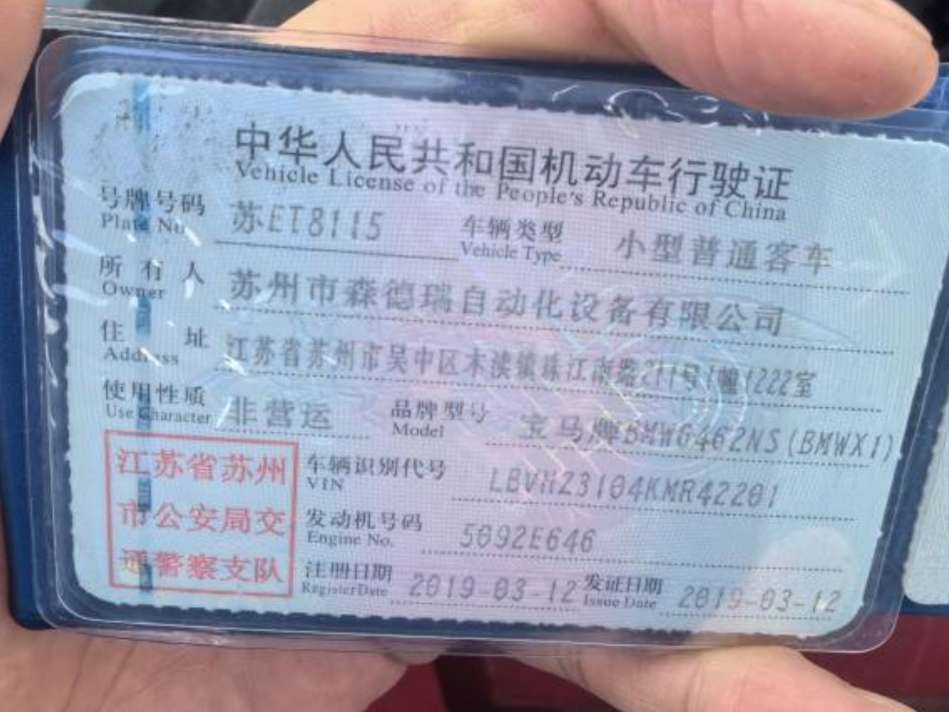 中华人民共和国机动车行驶证
Vehicle License of the People's Republic of China
号牌号码 苏ET8115 车辆类型 小型普通客车
Plate No. Vehicle Type
所有人 苏州市森德瑞自动化设备有限公司
Owner
住址 江苏省苏州市吴中区木渎镇珠江南路211号1幢1222室
Address
使用性质 非营运 品牌型号 宝马牌BMW6462NS(BMWX1)
Use Character Model
江苏省苏州 车辆识别代号 LBVHZ3104KMR42201
VIN
市公安局交 发动机号码 5092E646
Engine No.
通警察支队 注册日期 2019-03-12 发证日期 2019-03-12
Register Date Issue Date